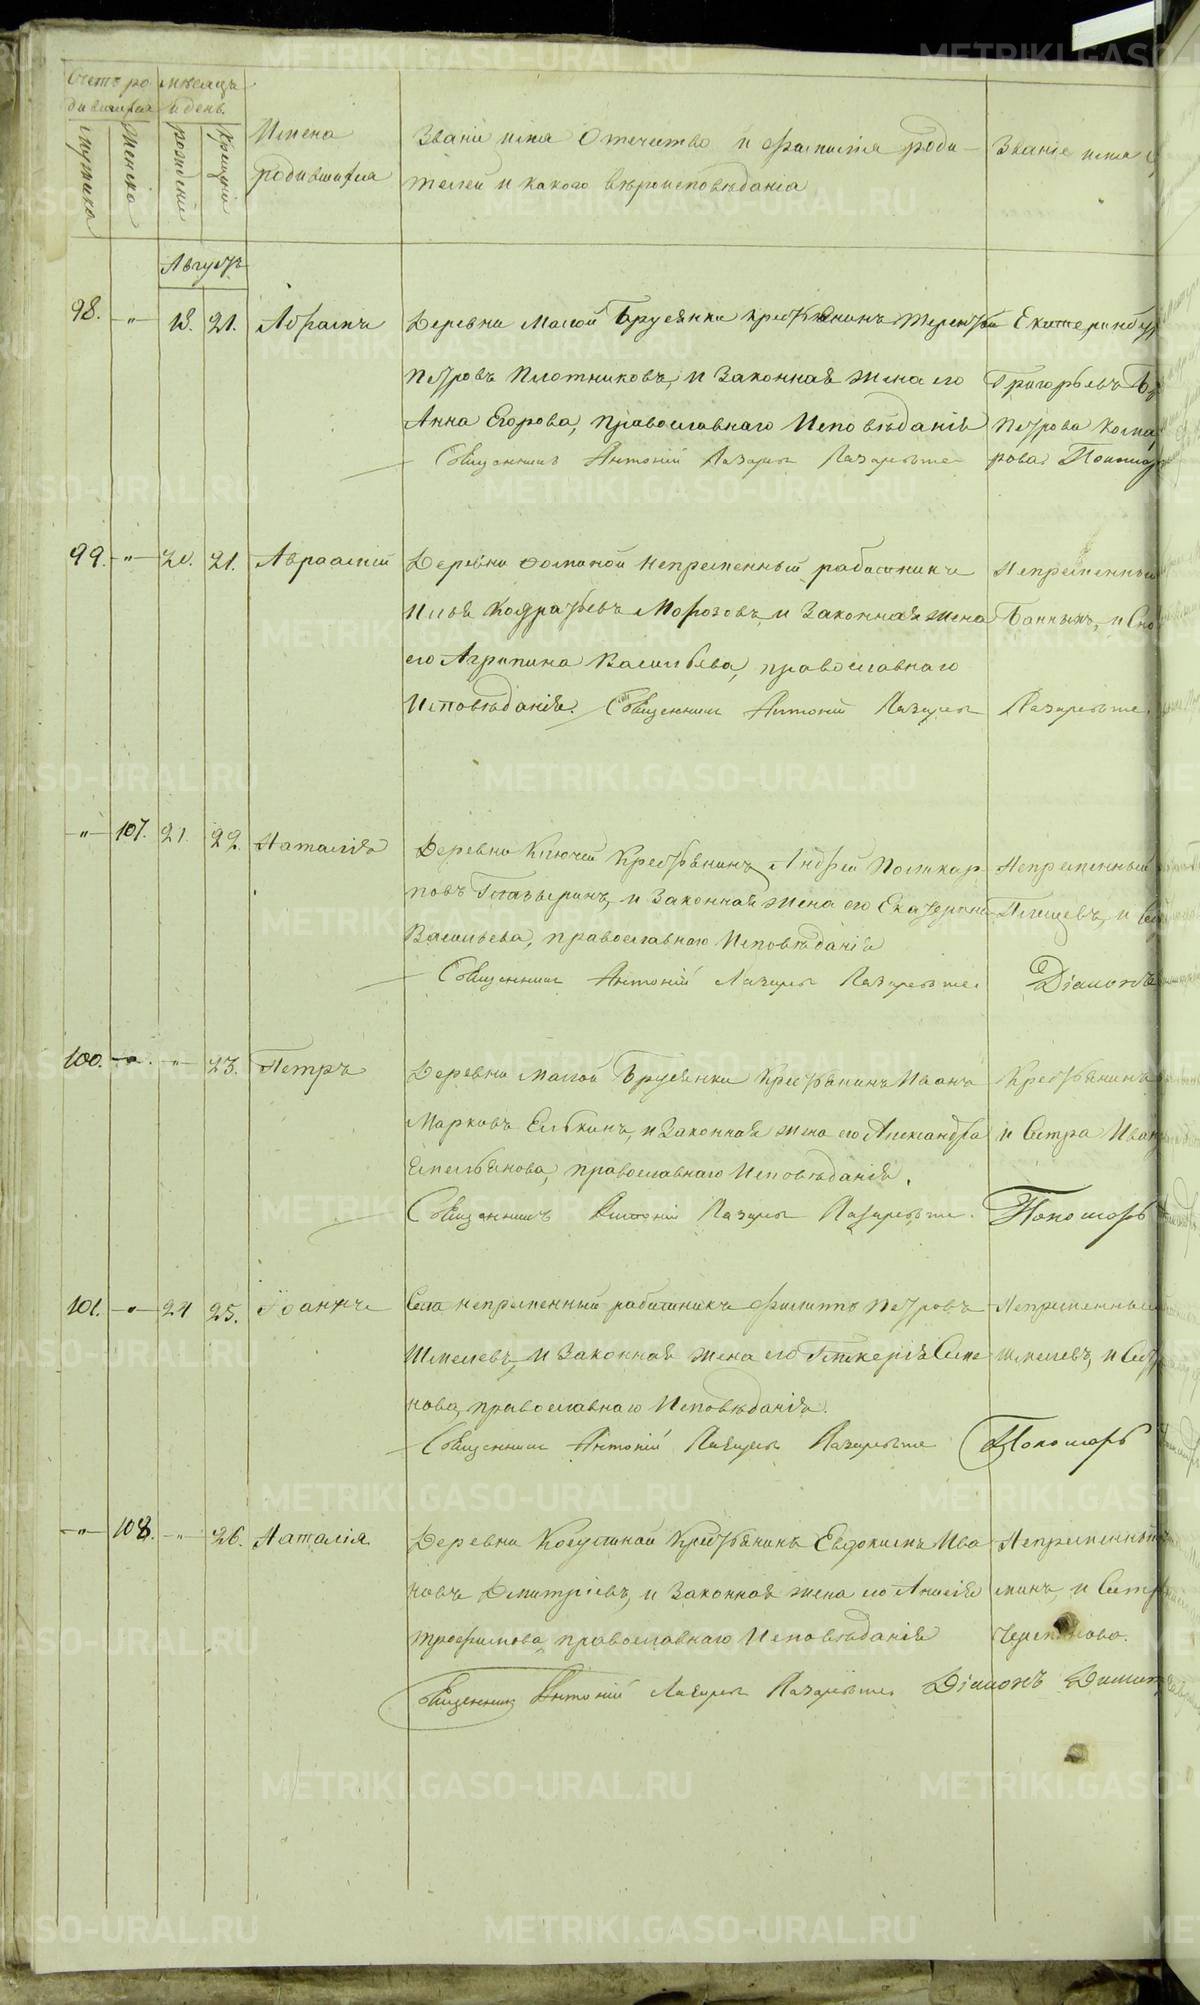 Счетъ ро
дившихся
мѣсяцъ
и день
мужска
женска
рожденія
крещенія
Имена
родившихся
Званіе имя Отечество и фамилія роди
телей и какого вѣроисповѣданія
Званіе имя
Августъ
98. 18. 21. Абрамъ
Деревни Малой Брусянки крестьянинъ Терентій
Петровъ Плотниковъ, и Законная жена его
Анна Егорова, православнаго Исповѣданія
Священникъ Антоній Лазаревъ
Екатеринбур
Григорьевъ
Петрова
рова Пономар
99. 20. 21. Авраамій
Деревни Фоминой Непременный работникъ
Илья Кодратьевъ Морозовъ, и Законная жена
его Агрипина Васильева, православнаго
Исповѣданія. Священникъ Антоній Лазаревъ
Непременный
107. 21. 22. Наталія
Деревни Ключей Крестьянинъ Андрей Поликар
повъ Глазыринъ, и Законная жена его Екатерина
Васильева, православнаго Исповѣданія
Священникъ Антоній Лазаревъ
Непременный
Діаконъ
100. 23. Петръ
Деревни Малой Брусянки Крестьянинъ Иванъ
Марковъ Елькинъ, и Законная жена его Александра
Емельянова, православнаго Исповѣданія.
Священникъ Антоній Лазаревъ
Крестьянинъ
и Сестра Иван
Пономарь
101. 24 25. Іоаннъ
Села непременный работникъ Филиппъ Петровъ
Шмелевъ, и Законная жена его Гликерія Симо
нова, православнаго Исповѣданія.
Священникъ Антоній Лазаревъ
Непременный
Шмелевъ, и Сест
Пономарь
108. 26. Наталія
Деревни Крестьянинъ Евдокимъ Ива
новъ Дмитріевъ, и Законная жена его Анисія
Трофимова православнаго Исповѣданія
Священникъ Антоній Лазаревъ
Непременный
минъ, и Сестр
Діаконъ Димит
METRIKI.GASO-URAL.RU